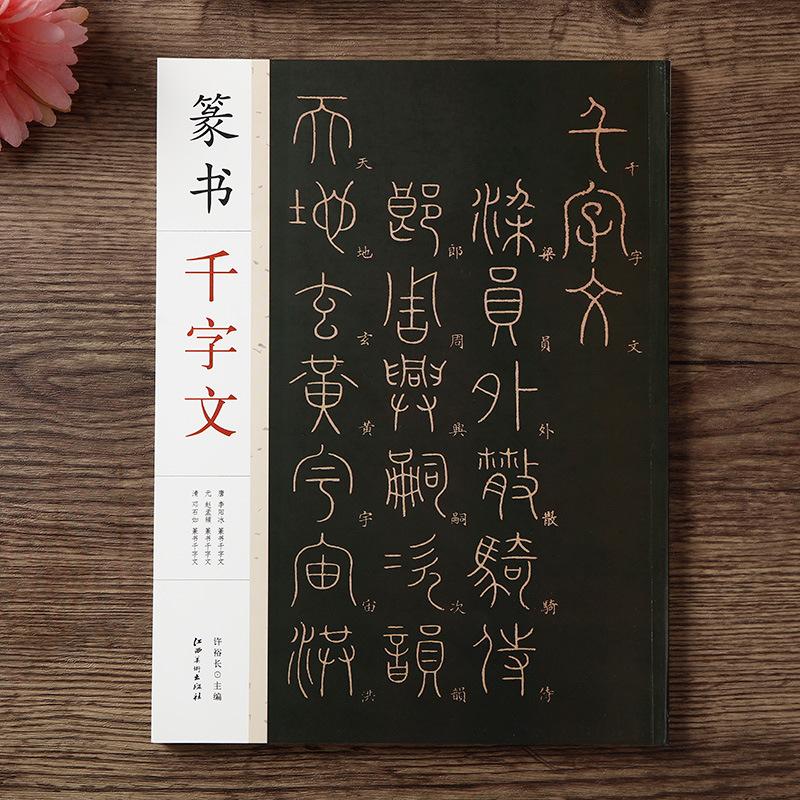 篆书
千字文
唐 李阳冰 篆书千字文
元 赵孟頫 篆书千字文
清 邓石如 篆书千字文
许裕长⊙主编
江西美术出版社
千字文
千字文
梁員外散騎侍
梁員外散騎侍
郎周興嗣次韻
郎周興嗣次韻
天地玄黃宇宙洪
天地玄黃宇宙洪